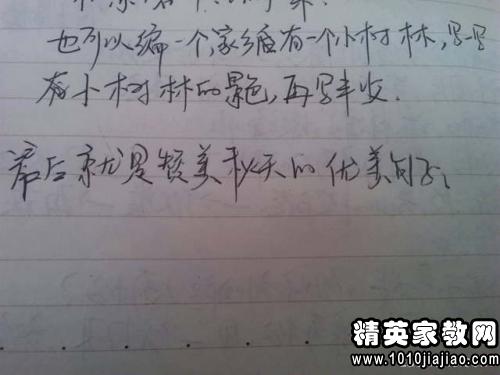 也可以编一个,家乡有一个小树林,写一写
有小树林的景色,再写丰收.
最后就是赞美秋天的优美句子。
精英家教网
www.1010jiajiao.com